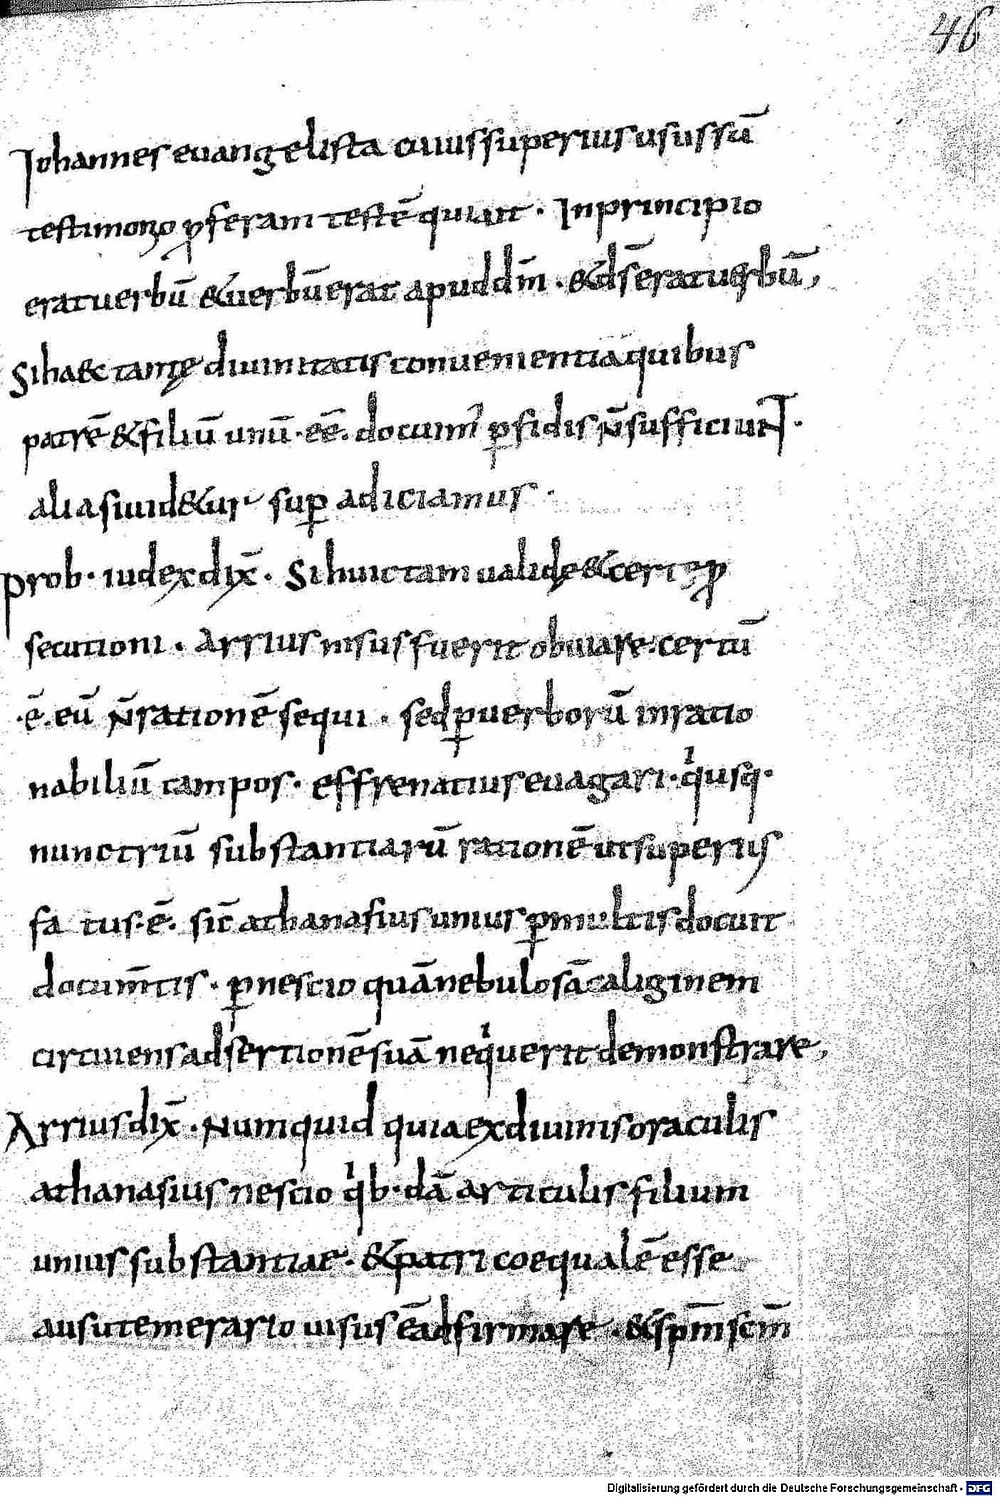 46
Iohannes euangelista cuius superius usus sū
testimonio ꝓferam testē qui ait · In principio
erat uerbū & uerbū erat apud dm̄ · & ds̄ erat uerbū,
Si haec tantę diuinitatis conuenientia quibus
patrē & filiū unū · eē · documt̄ ꝑfidis n̄ sufficiunt ·
alia si uidetur suꝑadiciamus ·
Prob · iudex dix̄ · Si huic tam ualidę & certę ꝓ
secutioni · Arrius nisus fuerit obuiare · certū
· ē · eū n̄ rationē sequi · sed ꝑ uerborū inratio
nabiliū campos · effrenatius euagari · qͥ usq ·
nunc triū substantiarū rationē ut superius
fa tus · ē · sic̄ athanasius unius ꝑ multis docuit
documt̄is · ꝑ nescio quā nebulosā caliginem
circuiens adsertionē suā neqͥuerit demonstrare,
Arrius dix̄ · Numquid quia ex diuinis oraculis
athanasius nescio qͥb · dā articulis filium
unius substantiae · & patri coequalē esse
ausu temerario uisus ē adfirmare · & spm̄ scm̄
Digitalisierung gefördert durch die Deutsche Forschungsgemeinschaft - DFG